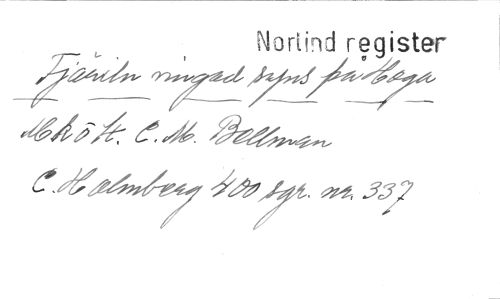 Norlind register
Fjäriln vingad syns på Haga
Mköst. C. M. Bellman
C. Holmberg 400 sgr. nr. 337